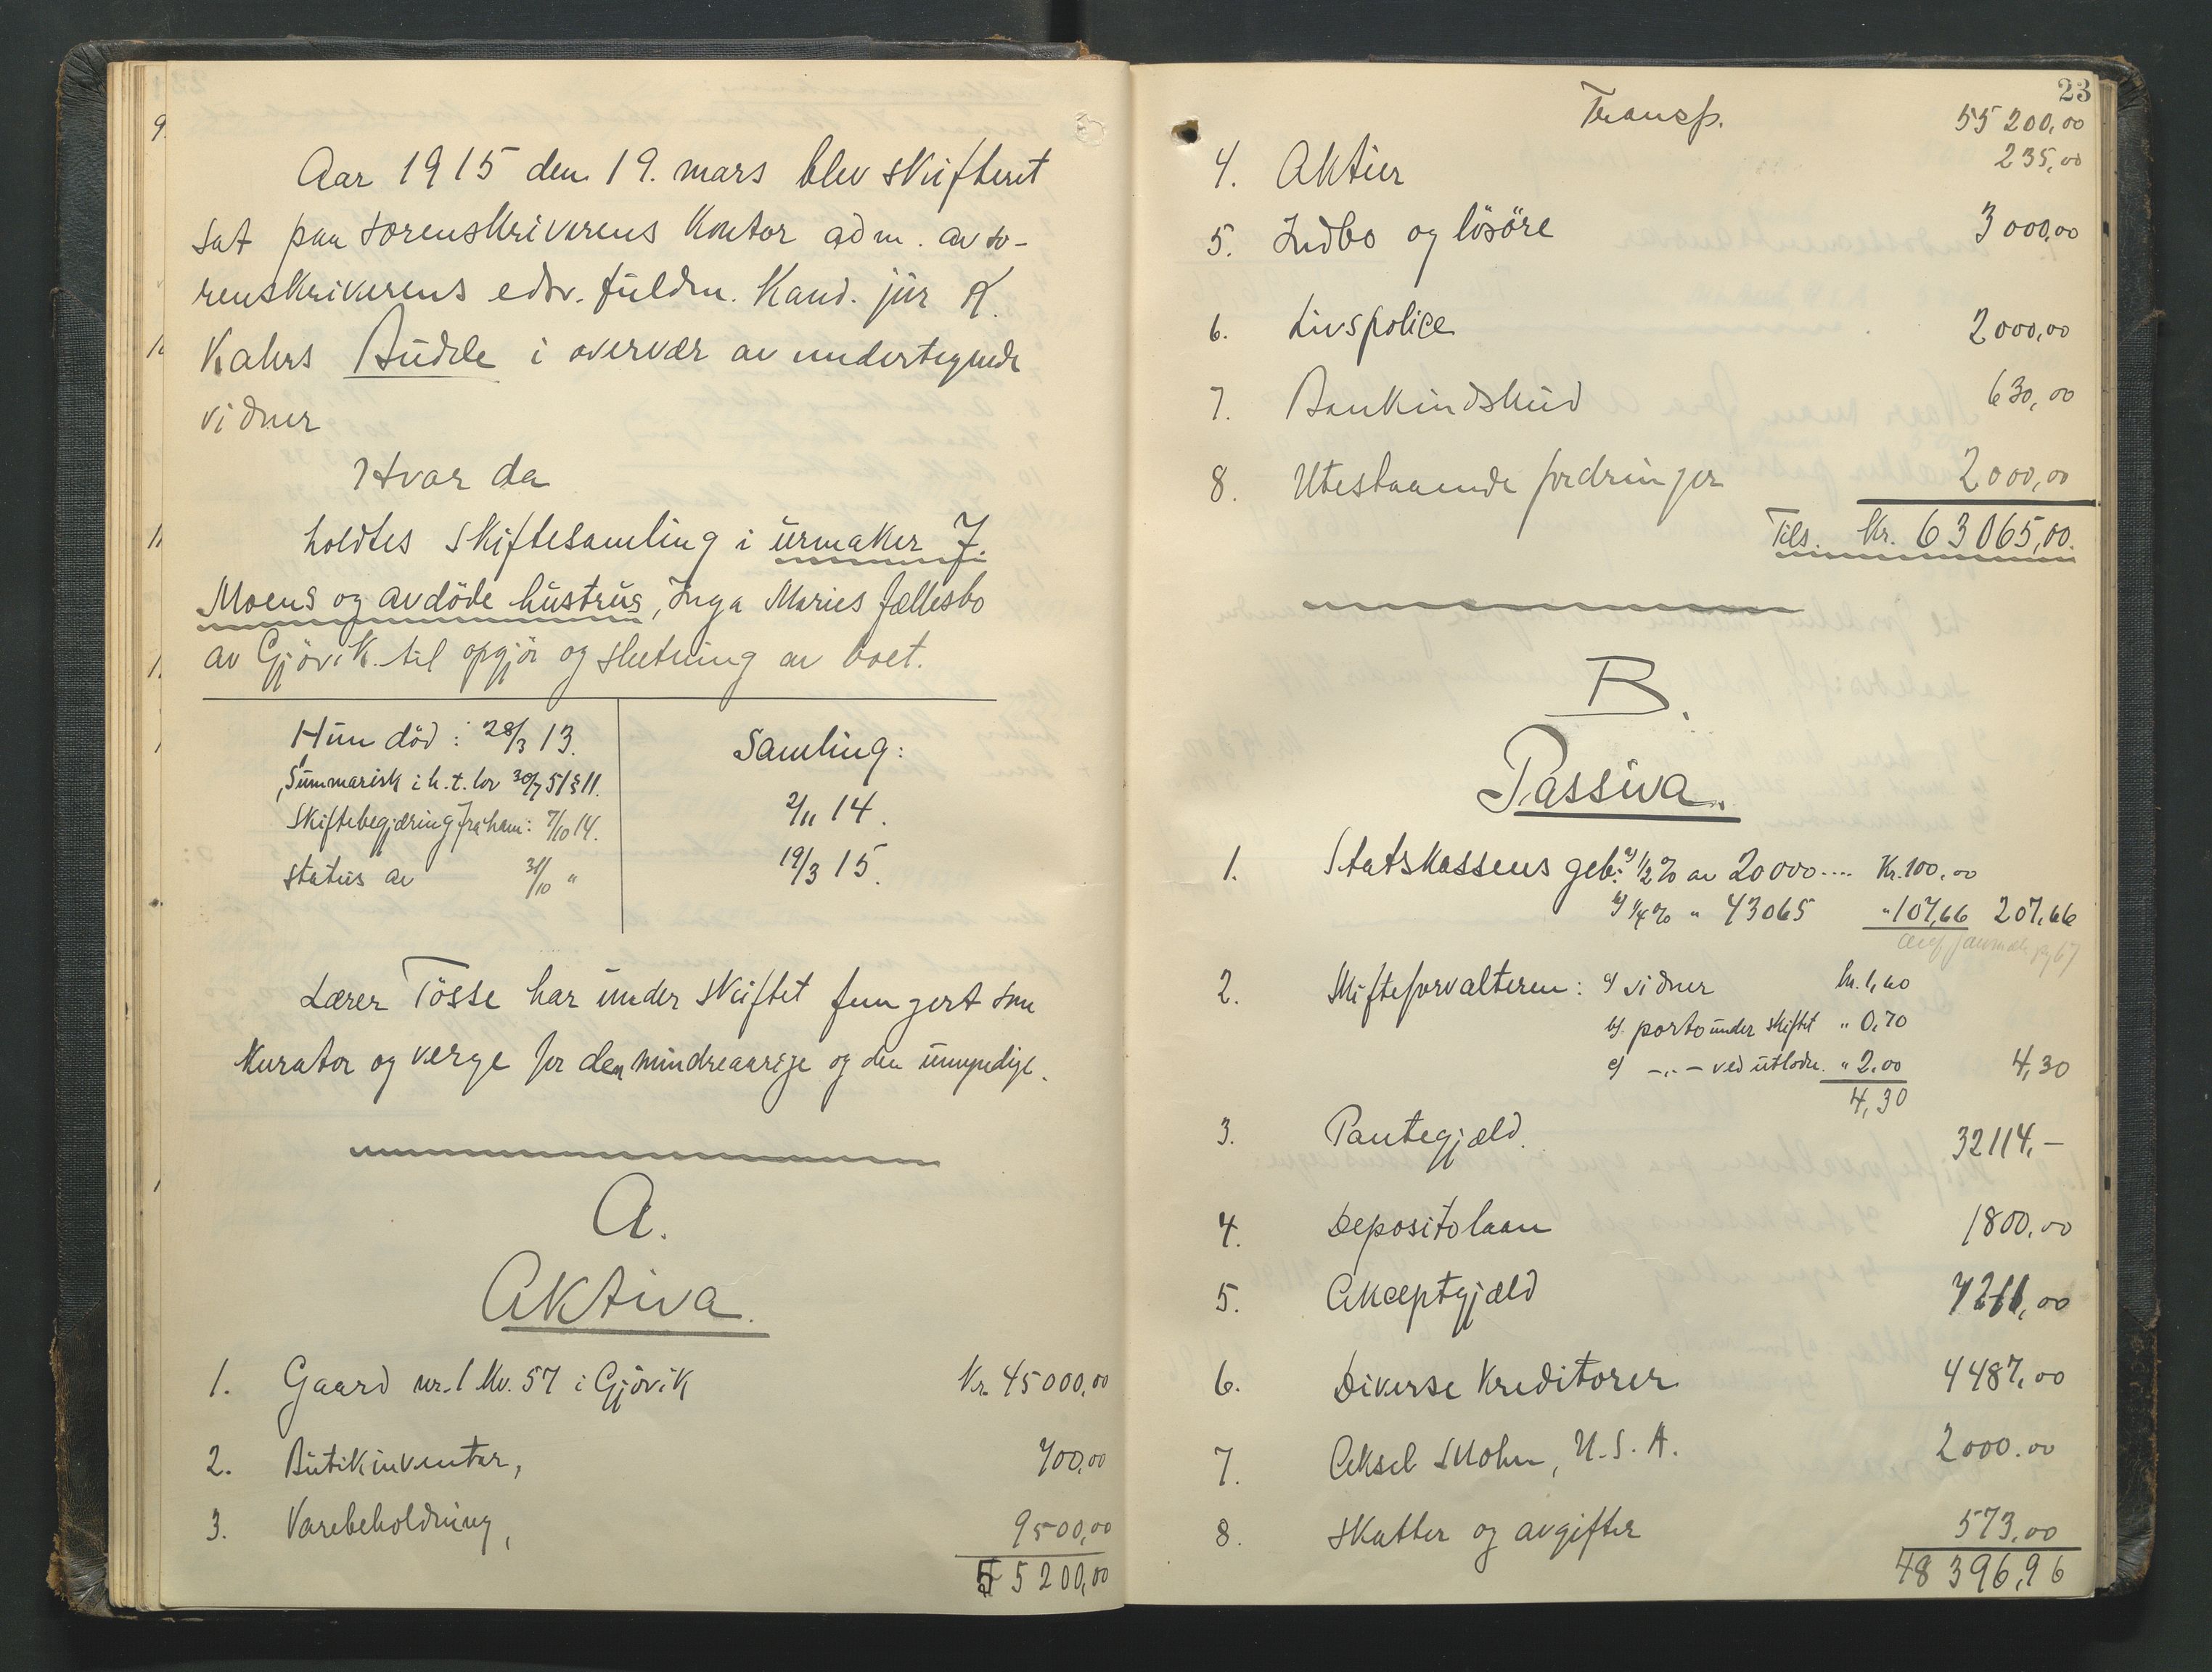 Aar 1915 den 19. mars blev skifteret
sat paa sorenskriverens kontor adm. av so-
renskriverens edsv. fuldm. Kand. jur K.
Kahrs Budde i overvær av undertegnede
vidner
Hvor da
holdtes skiftesamling i urmaker J.
Moens og avdöde hustrus, Inga Maries fællesbo
av Gjövik til opgjör og slutning av boet.
Hun död: 28/3 13.
Summarisk i h. t. lov 30/7 51 § 11.
Skiftebegjæring fra ham: 7/10 14.
Status av 31/10 "
Samling:
2/11 14.
19/3 15.
Lærer Tösse har under skiftet fungert som
kurator og verge for den mindreaarige og den umyndige.
A.
Aktiva.
1. Gaard nr. 1 Kv. 57 i Gjövik Kr. 45000,00
2. Butikinventar, 700,00
3. Varebeholdning, 9500,00
55200,00
23
Transp. 55200,00
4. Aktier 235,00
5. Indbo og lösöre 3000,00
6. Livspolice 2000,00
7. Bankindskud 630,00
8. Utestaaende fordringer 2000,00
Tils. Kr. 63065,00.
B.
Passiva.
1. Statskassens geb: a) 1/2 % av 20000.... Kr. 100,00
b) 1/4 % " 43065 " 107,66 207,66
2. Skifteforvalteren: a) vidner kr. 1,60
b) porto under skiftet " 0,70
c) -"- ved utlodn. " 2,00 4,30
4,30
3. Pantegjæld. 32114,-
4. Depositolaan 1800,00
5. Akceptgjæld 7211,00
6. Diverse kreditorer 4487,00
7. Aksel Mohn, U.S.A. 2000.00
8. Skatter og avgifter 573,00
48396,96